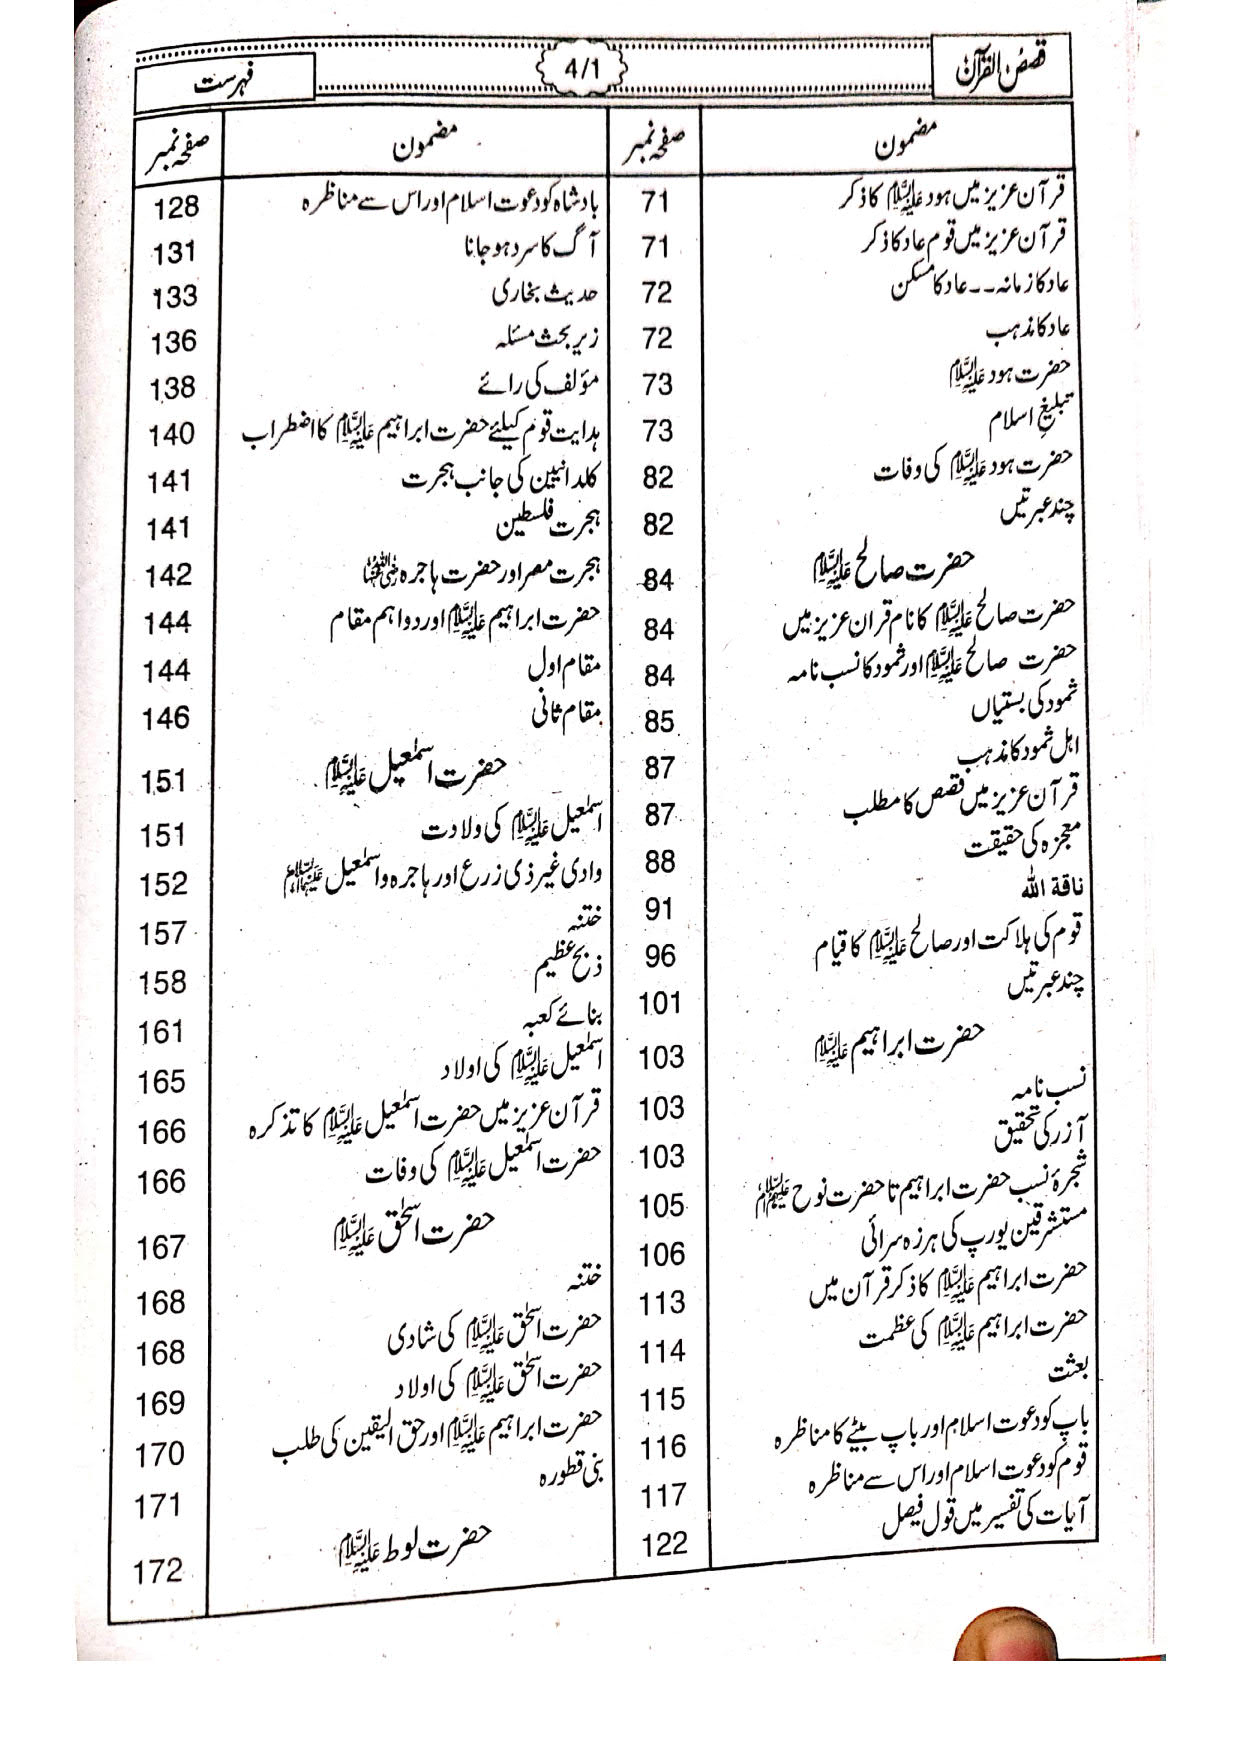 قصص القرآن
4/1
فہرست
مضمون صفحہ نمبر
قرآن عزیز میں ہود علیہ السلام کا ذکر 71
قرآن عزیز میں قوم عاد کا ذکر 71
عاد کا زمانہ۔۔عاد کا مسکن 72
عاد کا مذہب 72
حضرت ہود علیہ السلام 73
تبلیغِ اسلام 73
حضرت ہود علیہ السلام کی وفات 82
چند عبرتیں 82
حضرت صالح علیہ السلام 84
حضرت صالح علیہ السلام کا نام قران عزیز میں 84
حضرت صالح علیہ السلام اور ثمود کا نسب نامہ 84
ثمود کی بستیاں 85
اہل ثمود کا مذہب 87
قرآن عزیز میں قصص کا مطلب 87
معجزہ کی حقیقت 88
ناقۃ اللہ 91
قوم کی ہلاکت اور صالح علیہ السلام کا قیام 96
چند عبرتیں 101
حضرت ابراہیم علیہ السلام 103
نسب نامہ 103
آزر کی تحقیق 103
شجرۂ نسب حضرت ابراہیم تا حضرت نوح علیہم السلام 105
مستشرقین یورپ کی ہرزہ سرائی 106
حضرت ابراہیم علیہ السلام کا ذکر قرآن میں 113
حضرت ابراہیم علیہ السلام کی عظمت 114
بعثت 115
باپ کو دعوت اسلام اور باپ بیٹے کا مناظرہ 116
قوم کو دعوت اسلام اور اس سے مناظرہ 117
آیات کی تفسیر میں قول فیصل 122
مضمون صفحہ نمبر
بادشاہ کو دعوت اسلام اور اس سے مناظرہ 128
آگ کا سرد ہو جانا 131
حدیث بخاری 133
زیر بحث مسئلہ 136
مؤلف کی رائے 138
ہدایت قوم کیلئے حضرت ابراہیم علیہ السلام کا اضطراب 140
کلدانیین کی جانب ہجرت 141
ہجرت فلسطین 141
ہجرت مصر اور حضرت ہاجرہ رضی اللہ عنہا 142
حضرت ابراہیم علیہ السلام اور دو اہم مقام 144
مقام اول 144
مقام ثانی 146
حضرت اسمٰعیل علیہ السلام 151
اسمٰعیل علیہ السلام کی ولادت 151
وادی غیر ذی زرع اور ہاجرہ و اسمٰعیل علیہما السلام 152
ختنہ 157
ذبح عظیم 158
بنائے کعبہ 161
اسمٰعیل علیہ السلام کی اولاد 165
قرآن عزیز میں حضرت اسمٰعیل علیہ السلام کا تذکرہ 166
حضرت اسمٰعیل علیہ السلام کی وفات 166
حضرت اسحٰق علیہ السلام 167
ختنہ 168
حضرت اسحٰق علیہ السلام کی شادی 168
حضرت اسحٰق علیہ السلام کی اولاد 169
حضرت ابراہیم علیہ السلام اور حق الیقین کی طلب 170
بنی قطورہ 171
حضرت لوط علیہ السلام 172